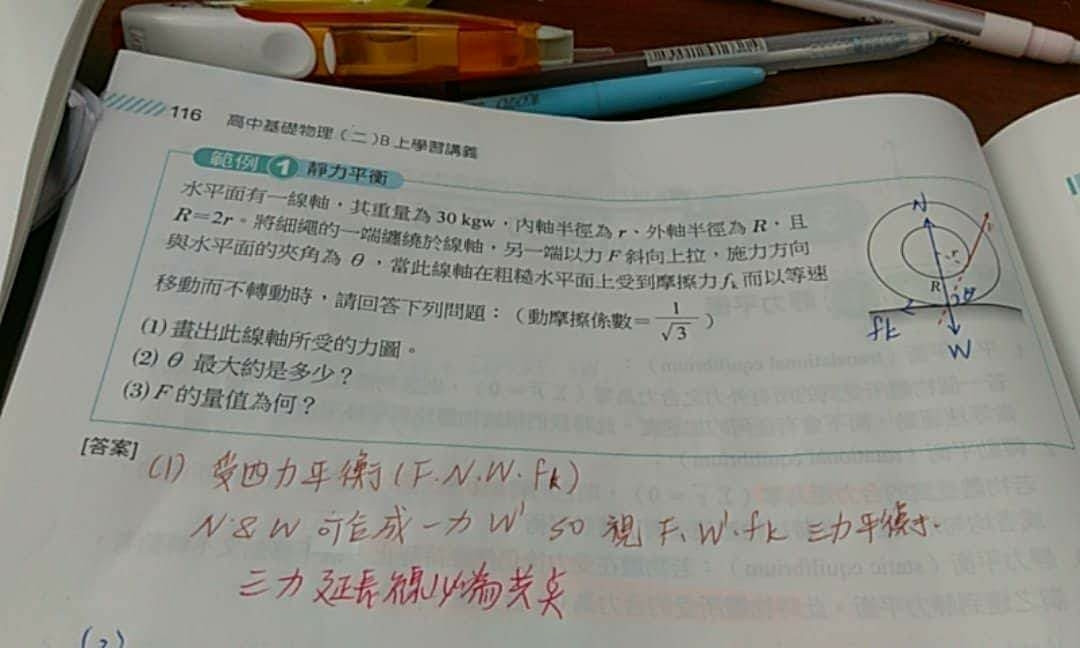 116 高中基礎物理(二)B上學習講義
範例 1 靜力平衡
水平面有一線軸,其重量為 30 kgw,內軸半徑為 r、外軸半徑為 R,且
R=2r。將細繩的一端纏繞於線軸,另一端以力 F 斜向上拉,施力方向
與水平面的夾角為 θ,當此線軸在粗糙水平面上受到摩擦力 fk 而以等速
移動而不轉動時,請回答下列問題:(動摩擦係數=1/√3)
(1) 畫出此線軸所受的力圖。
(2) θ 最大約是多少?
(3) F 的量值為何?
N
r
R
θ
fk
W
[答案]
(1) 受四力平衡(F.N.W.fk)
N & W 可合成一力 W' so 視 F、W'.fk 三力平衡
三力延長線必為共點
(2)